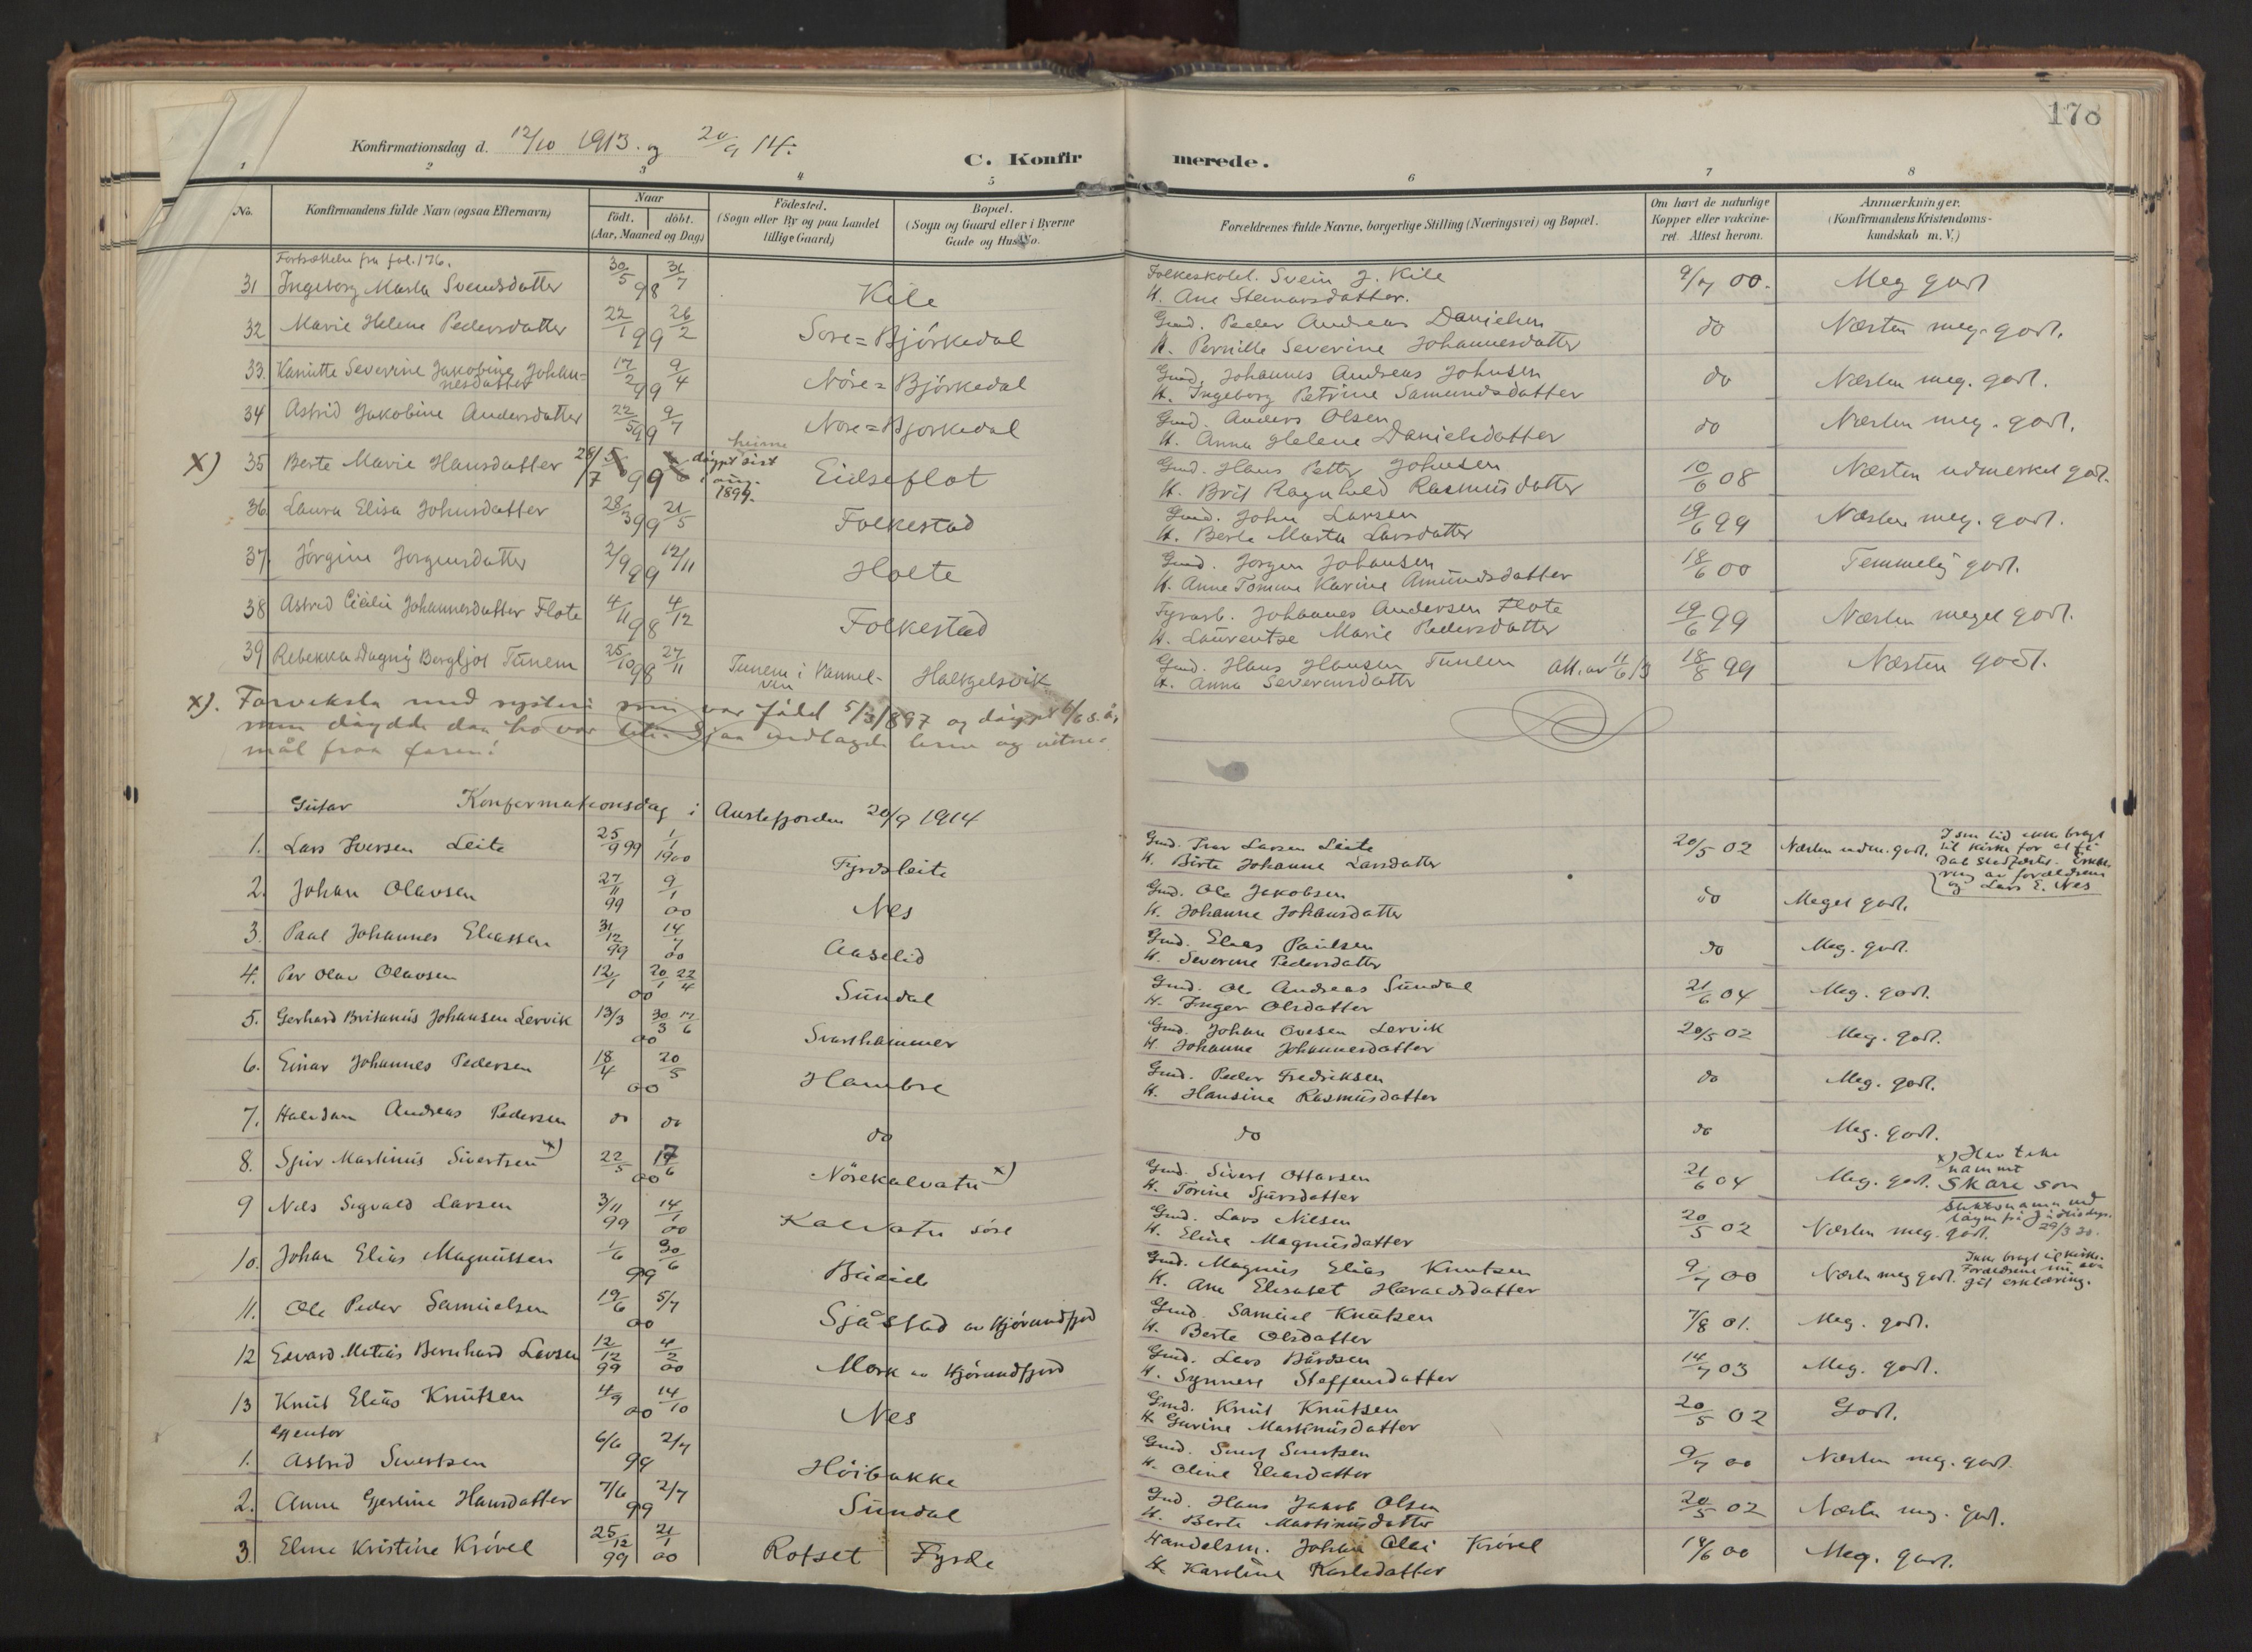 178
Konfirmationsdag d. 12/10 1913. og 20/9 14.
C. Konfirmerede.
1 2 3 4 5 6 7 8
No. Konfirmandens fulde Navn (ogsaa Efternavn) Naar födt. döbt. (Aar, Maaned og Dag) Födested. (Sogn eller By og paa Landet tillige Gaard) Bopæl. (Sogn og Gaard eller i Byerne Gade og Hus No. Forældrenes fulde Navne, borgerlige Stilling (Næringsvei) og Bopæl. Om havt de naturlige Kopper eller vakcineret. Attest herom. Anmærkninger. (Konfirmandens Kristendomskundskab m. V.)
Fortsættelse fra fol. 176.
31 Ingeborg Marta Svendsdatter 30/5 98 31/7 Kile Folkeskolel. Svein J. Kile 9/7 00. Meg godt
H. Ane Steinarsdatter.
32 Marie Helene Pedersdatter 22/1 99 26/2 Søre=Björkedal Gmd. Peder Andreas Danielsen do Næsten meg. godt.
H. Pernille Severine Johannesdatter
33. Kanutte Severine Jakobine Johan= 17/2 99 9/4 Nöre=Björkedal Gmd. Johannes Andreas Johnsen do Næsten meg. godt.
nesdatter H. Ingeborg Petrine Samundsdatter
34 Astrid Jakobine Andersdatter 22/5 99 9/7 Nöre=Bjorkedal Gmd. Anders Olsen do Næsten meg. godt.
H. Anna Helene Danielsdatter
X) 35 Berte Marie Hansdatter 28/7 99 heime döypt sist i aug. 1899. Eidseflot Gmd. Hans Petter Johnsen 10/6 08 Næsten udmerket godt.
H. Brit Ragnhild Rasmusdatter
36 Laura Elisa Johnsdatter 28/3 99 21/5 Folkestad Gmd. John Larsen 19/6 99 Næsten meg. godt.
H. Berte Marta Larsdatter
37. Jörgine Jorgensdatter 2/9 99 12/11 Holte Gmd. Jorgen Johansen 18/6 00 Temmelig godt.
H. Anne Tomine Karine Amundsdatter
38 Astrid Cicilie Johannesdatter Flote 4/11 98 4/12 Folkestad Fyrarb. Johannes Andersen Flote 19/6 99 Næsten meget godt.
H. Laurentse Marie Pedersdatter
39 Rebekka Dagny Bergljot Tunem 25/10 98 27/11 Tunem i Vannelven Halkjelsvik Gmd. Hans Hansen Tunem att. av 11/6 13 18/8 99 Næsten godt.
H. Anna Severinsdatter
x). Forveksla med systeri som var född 5/3/1897 og döypt 6/6 s. år,
men döydde daa ho var liti. Sjaa vedlagde brev og vitne=
mål fraa faren!
Gutar Konfirmationsdag i Austefjorden 20/9 1914
1. Lars Iversen Leite 25/9 99 1/1 1900 Fyrdsleite Gmd. Ivar Larsen Leite 20/5 02 Næsten udm. godt. I sin tid ikke bragt
H. Birte Johanne Larsdatter til kirke for at få
Dåb stadfæstet. Erklæ
ring av forældrene
og Lars E. Nes
2. Johan Olavsen 27/11 99 9/1 00 Nes Gmd. Ole Jakobsen do Meget godt.
H. Johanne Johansdatter
3. Paul Johannes Eliassen 31/12 99 14/7 00 Aaselid Gmd. Elias Paulsen do Meg. godt.
H. Severine Pedersdatter
4. Per Olav Olavsen 12/1 00 20/1 22/4 Sundal Gmd. Ole Andreas Sundal 21/6 04 Meg. godt.
H. Inger Olsdatter
5. Gerhard Britanus Johansen Lervik 13/3 00 30/3 17/6 Svarthammer Gmd. Johan Ovesen Lervik 20/5 02 Meg. godt.
H. Johanne Johannesdatter
6. Einar Johannes Pedersen 18/4 00 20/5 Hambre Gmd. Peder Fredriksen do Meg. godt.
H. Hansine Rasmusdatter
7. Halvdan Andreas Pedersen do do do do do Meg. godt.
8. Sjur Martinus Sivertsen x) 22/5 00 17/6 Nörekalvatn x) Gmd. Sivert Ottarsen 21/6 04 Meg. godt. x) Hev teke
H. Torine Sjursdatter namnet
Skare som
slektsnamn ved
29/3 30.
9 Nils Sigvald Larsen 3/11 99 14/1 00 Kalvatn söre Gmd. Lars Nilsen 20/5 02 Næsten meg. godt.
H. Eline Magnusdatter
10. Johan Elias Magnussen 1/6 99 30/6 Gmd. Magnus Elias Knutsen 9/7 00 Næsten meg godt. Ikke bragt til kirke.
H. Ane Elisabet Haraldsdatter Forældrene
git erklæring.
11. Ole Peder Samuelsen 19/6 00 5/7 Sjåstad av Hjörundfjord Gmd Samuel Knutsen 7/8 01. Meg. godt.
H. Berte Olsdatter
12 Edvard Matias Bernhard Larsen 12/12 99 4/2 00 Mork av Hjörundfjord Gmd. Lars Bårdsen 14/7 03 Meg. godt.
H. Synneve Steffensdatter
13 Knut Elias Knutsen 4/9 00 14/10 Nes Gmd. Knut Knutsen 20/5 02 Godt.
H. Gurine Martinusdatter
Gjentor
1. Astrid Sivertsen 6/6 99 2/7 Höibakke Gmd. Sivert Sivertsen 9/7 00 Næsten meg. godt.
H. Oline Eliasdatter
2. Anne Gjertine Hansdatter 7/6 99 2/7 Sundal Gmd. Hans Jakob Olsen 20/5 02 Næsten meg. godt.
H. Berte Martinusdatter
3. Eline Kristine Krövel 25/12 99 21/1 00 Rotset Fyrde Handelsm. Johan Olai Krövel 14/6 00 Meg. godt.
H. Karoline Karlsdatter